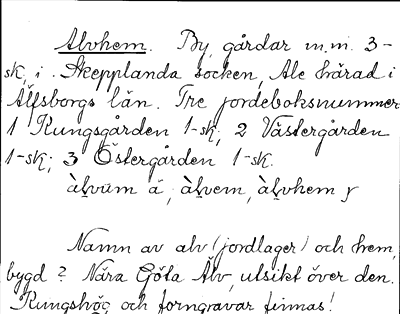 Alvhem. By, gårdar m.m. 3-
sk, i Skepplanda socken, Ale härad i
Älfsborgs län. Tre jordeboksnummer
1 Kungsgården 1-sk; 2 Västergården
1-sk; 3 Östergården 1-sk.
àḷvùm å, àḷvem, àḷvhem y
Namn av alv (jordlager) och hem,
bygd? Nära Göta Älv, utsikt över den.
Kungshög och forngravar finnas!